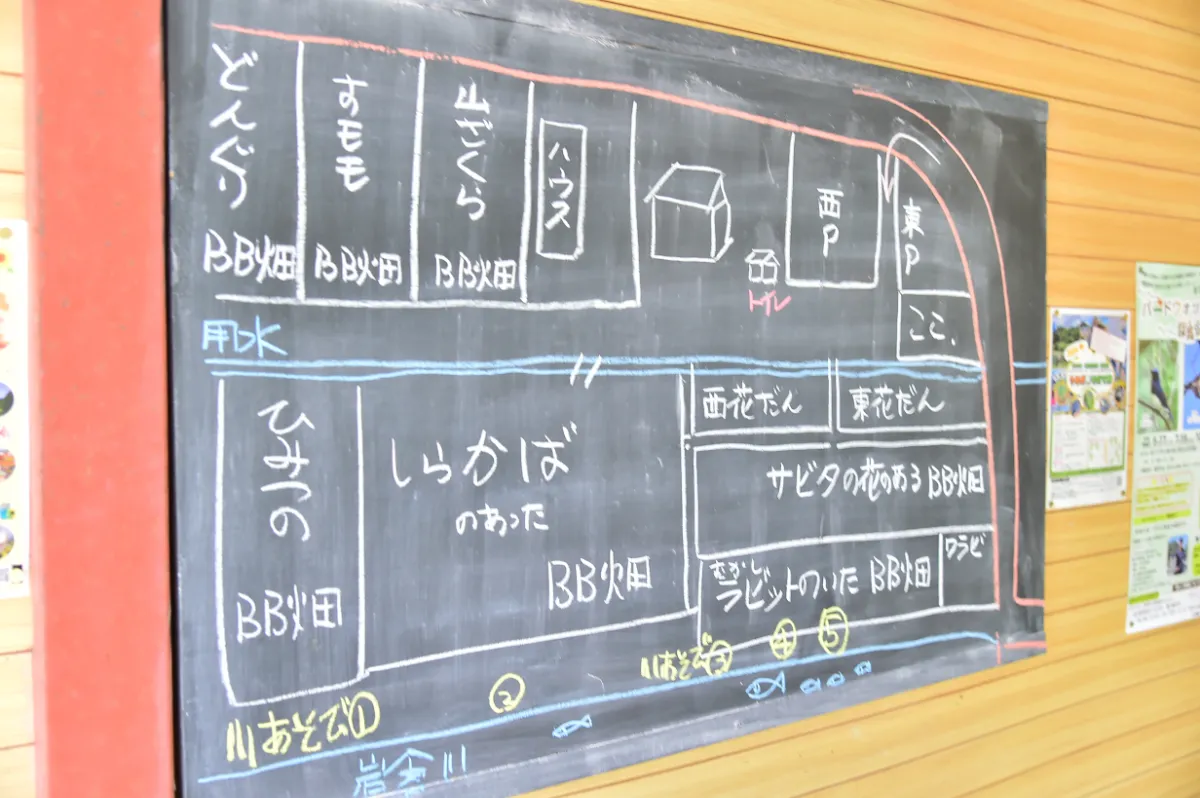 どんぐり
BB畑
すモモ
BB畑
山ざくら
BB畑
ハウス
トイレ
西P
東P
ここ.
用水
ひみつの
BB畑
しらかば
のあった
BB畑
西花だん
東花だん
サビタの花のある BB畑
むかし
ラビットのいた BB畑
ワラビ
川あそび①
②
川あそび③
④
⑤